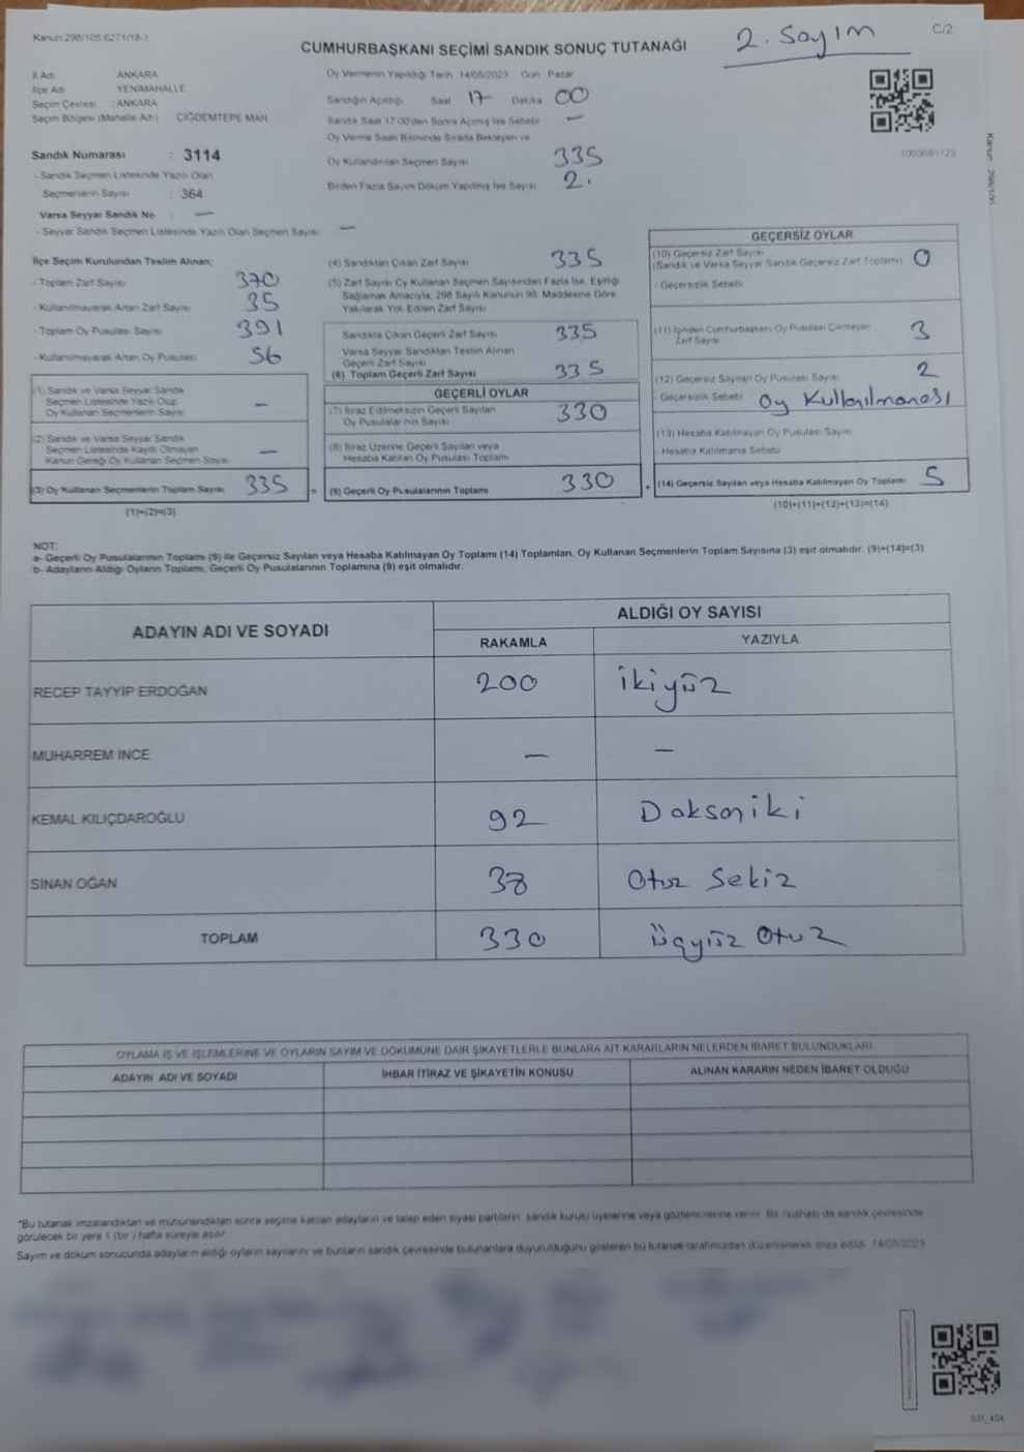 Kanun 298/105 6271/18-1
CUMHURBAŞKANI SEÇİMİ SANDIK SONUÇ TUTANAĞI
2. Sayım
C/2
İl Adı ANKARA
İlçe Adı YENİMAHALLE
Seçim Çevresi : ANKARA
Seçim Bölgesi (Mahalle Adı) ÇİĞDEMTEPE MAH.
Sandık Numarası : 3114
- Sandık Seçmen Listesinde Yazılı Olan
Seçmenlerin Sayısı : 364
Varsa Seyyar Sandık No : —
- Seyyar Sandık Seçmen Listesinde Yazılı Olan Seçmen Sayısı —
Oy Vermenin Yapıldığı Tarih 14/05/2023 Gün Pazar
Sandığın Açıldığı Saat 17 Dakika 00
Sandık Saat 17:00'den Sonra Açılmış İse Sebebi —
Oy Verme Saati Bitiminde Sırada Bekleyen ve
Oy Kullandırılan Seçmen Sayısı 335
Birden Fazla Sayım Döküm Yapılmış İse Sayısı 2.
İlçe Seçim Kurulundan Teslim Alınan;
- Toplam Zarf Sayısı 370
- Kullanılmayarak Artan Zarf Sayısı 35
- Toplam Oy Pusulası Sayısı 391
- Kullanılmayarak Artan Oy Pusulası 56
(1) Sandık ve Varsa Seyyar Sandık
Seçmen Listesinde Yazılı Olup
Oy Kullanan Seçmenlerin Sayısı —
(2) Sandık ve Varsa Seyyar Sandık
Seçmen Listesinde Kayıtlı Olmayan
Kanun Gereği Oy Kullanan Seçmen Sayısı —
(3) Oy Kullanan Seçmenlerin Toplam Sayısı 335
(1)+(2)=(3)
(4) Sandıktan Çıkan Zarf Sayısı 335
(5) Zarf Sayısı Oy Kullanan Seçmen Sayısından Fazla İse, Eşitliği
Sağlamak Amacıyla; 298 Sayılı Kanunun 98. Maddesine Göre
Yakılarak Yok Edilen Zarf Sayısı
Sandıkta Çıkan Geçerli Zarf Sayısı 335
Varsa Seyyar Sandıktan Teslim Alınan
Geçerli Zarf Sayısı
(6) Toplam Geçerli Zarf Sayısı 335
GEÇERLİ OYLAR
(7) İtiraz Edilmeksizin Geçerli Sayılan
Oy Pusulalarının Sayısı 330
(8) İtiraz Üzerine Geçerli Sayılan veya
Hesaba Katılan Oy Pusulası Toplamı
(9) Geçerli Oy Pusulalarının Toplamı 330
GEÇERSİZ OYLAR
(10) Geçersiz Zarf Sayısı
(Sandık ve Varsa Seyyar Sandık Geçersiz Zarf Toplamı) 0
- Geçersizlik Sebebi
(11) İçinden Cumhurbaşkanı Oy Pusulası Çıkmayan
Zarf Sayısı 3
(12) Geçersiz Sayılan Oy Pusulası Sayısı 2
- Geçersizlik Sebebi Oy Kullanılmaması
(13) Hesaba Katılmayan Oy Pusulası Sayısı
- Hesaba Katılmama Sebebi
(14) Geçersiz Sayılan veya Hesaba Katılmayan Oy Toplamı 5
(10)+(11)+(12)+(13)=(14)
NOT:
a- Geçerli Oy Pusulalarının Toplamı (9) ile Geçersiz Sayılan veya Hesaba Katılmayan Oy Toplamı (14) Toplamları, Oy Kullanan Seçmenlerin Toplam Sayısına (3) eşit olmalıdır. (9)+(14)=(3)
b- Adayların Aldığı Oyların Toplamı, Geçerli Oy Pusulalarının Toplamına (9) eşit olmalıdır.
ADAYIN ADI VE SOYADI
ALDIĞI OY SAYISI
RAKAMLA YAZIYLA
RECEP TAYYİP ERDOĞAN 200 ikiyüz
MUHARREM İNCE — —
KEMAL KILIÇDAROĞLU 92 Doksaniki
SİNAN OĞAN 38 Otuz Sekiz
TOPLAM 330 üçyüz Otuz
OYLAMA İŞ VE İŞLEMLERİNE VE OYLARIN SAYIM VE DÖKÜMÜNE DAİR ŞİKAYETLERLE BUNLARA AİT KARARLARIN NELERDEN İBARET BULUNDUKLARI
ADAYIN ADI VE SOYADI İHBAR İTİRAZ VE ŞİKAYETİN KONUSU ALINAN KARARIN NEDEN İBARET OLDUĞU
*Bu tutanak imzalandıktan ve mühürlendikten sonra seçime katılan adayların ve talep eden siyasi partilerin sandık kurulu üyelerine veya gözlemcilerine verilir. Bir nüshası da sandık çevresinde
görülecek bir yere 1 (bir) hafta süreyle asılır.
Sayım ve döküm sonucunda adayların aldığı oyların sayılarını ve bunların sandık çevresinde bulunanlara duyurulduğunu gösteren bu tutanak tarafımızdan düzenlenerek imza edildi. 14/05/2023